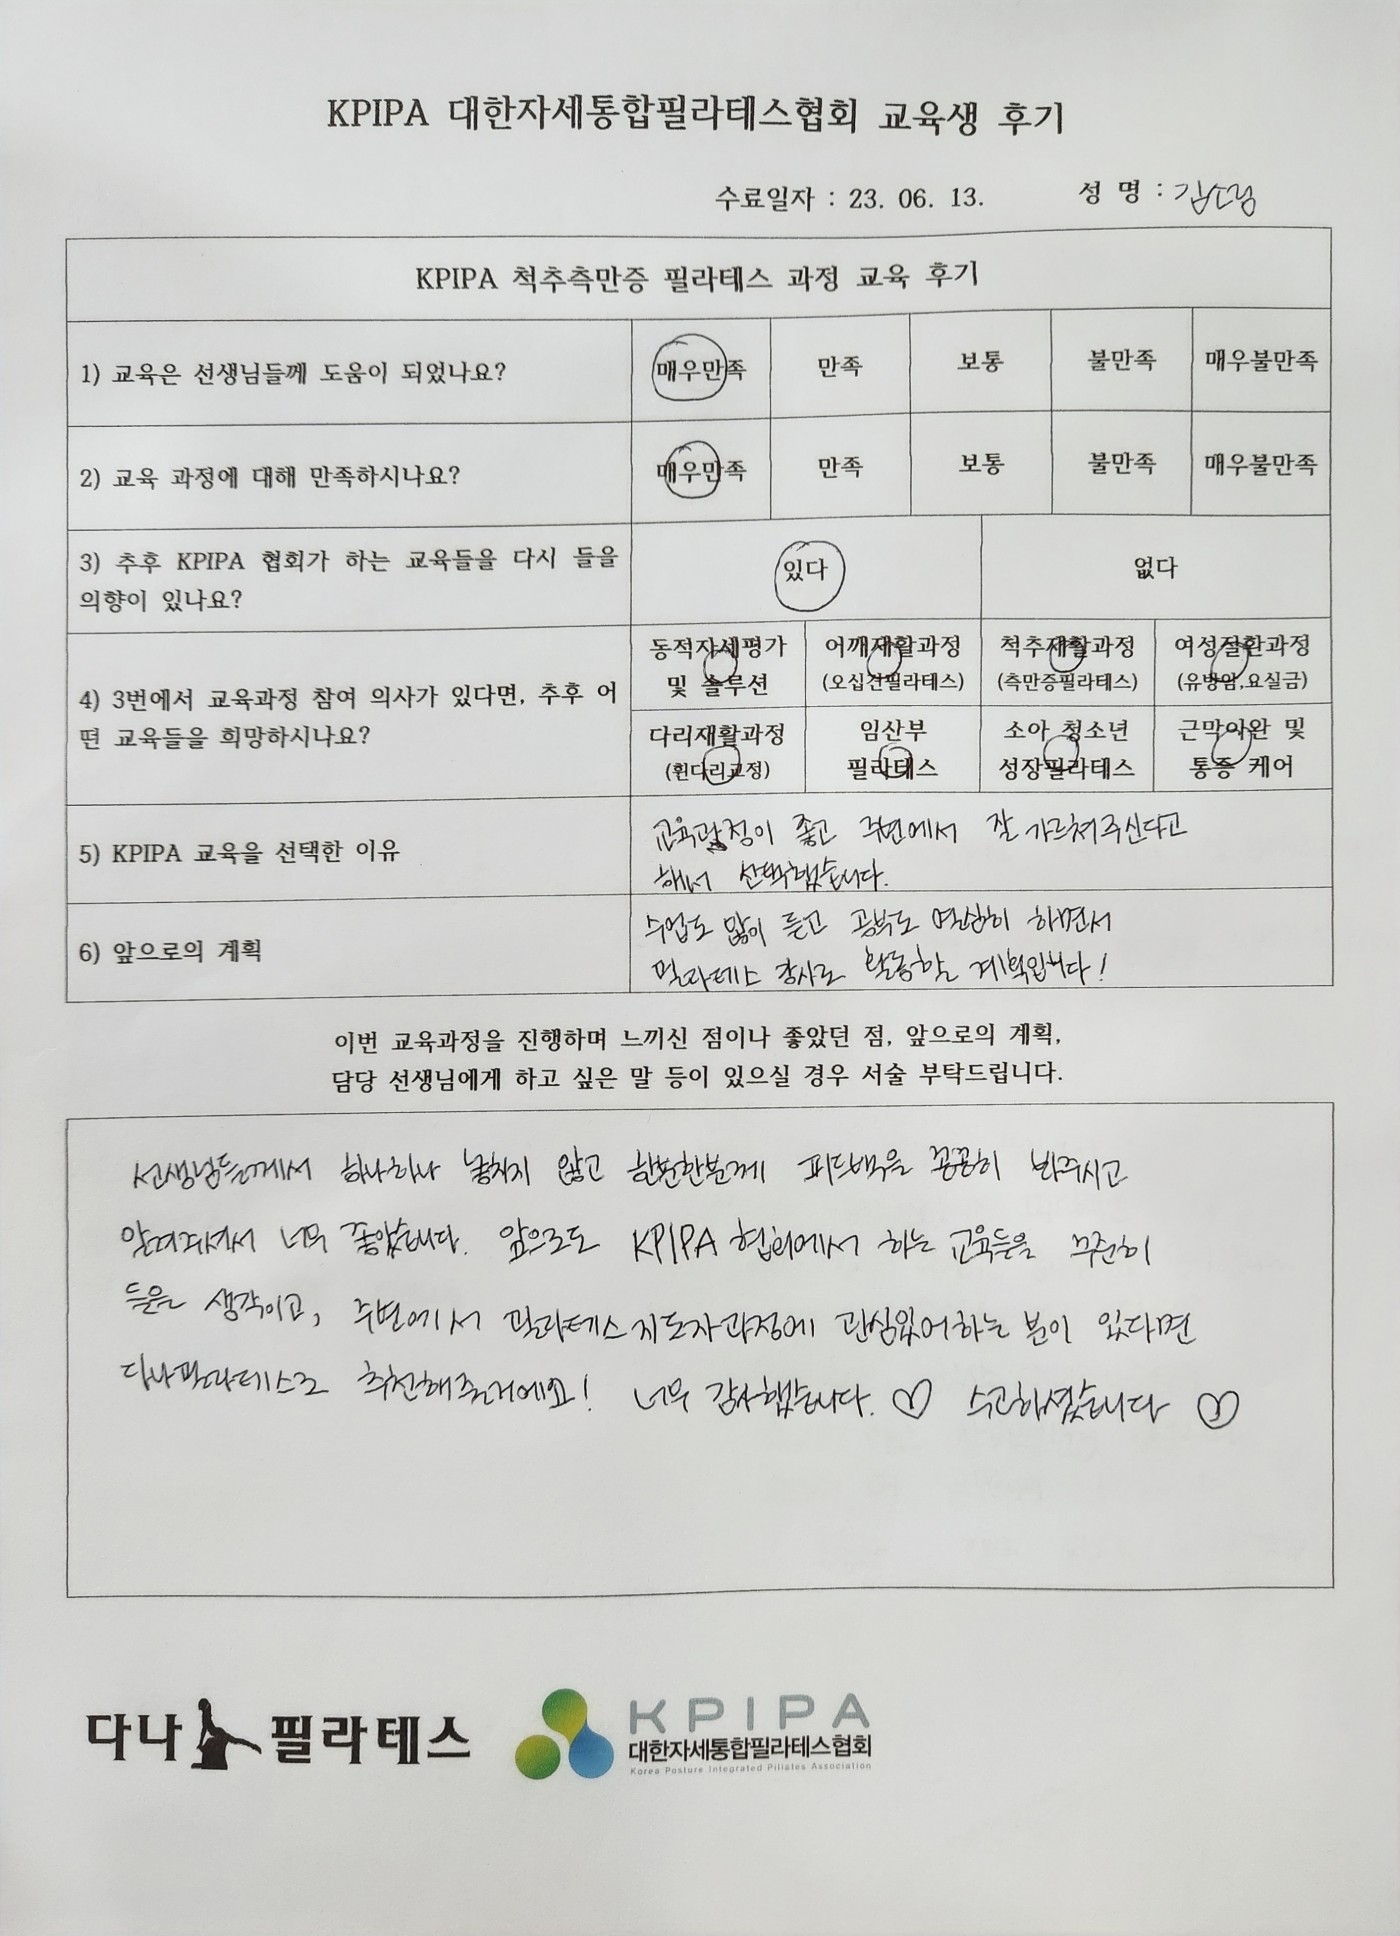 KPIPA 대한자세통합필라테스협회 교육생 후기
수료일자 : 23. 06. 13. 성 명 :
KPIPA 척추측만증 필라테스 과정 교육 후기
1) 교육은 선생님들께 도움이 되었나요? 매우만족 만족 보통 불만족 매우불만족
2) 교육 과정에 대해 만족하시나요? 매우만족 만족 보통 불만족 매우불만족
3) 추후 KPIPA 협회가 하는 교육들을 다시 들을
의향이 있나요?
있다 없다
4) 3번에서 교육과정 참여 의사가 있다면, 추후 어
떤 교육들을 희망하시나요?
동적자세평가 어깨재활과정 척추재활과정 여성질환과정
및 솔루션 (오십견필라테스) (측만증필라테스) (유방암,요실금)
다리재활과정 임산부 소아 청소년 근막이완 및
(휜다리교정) 필라테스 성장필라테스 통증 케어
5) KPIPA 교육을 선택한 이유
교육과정이 좋고 주변에서 잘 가르쳐주신다고
해서 선택했습니다.
6) 앞으로의 계획
수업도 많이 듣고 공부도 열심히 하면서
필라테스 강사로 활동할 계획입니다!
이번 교육과정을 진행하며 느끼신 점이나 좋았던 점, 앞으로의 계획,
담당 선생님에게 하고 싶은 말 등이 있으실 경우 서술 부탁드립니다.
선생님들께서 하나하나 놓치지 않고 한분한분께 피드백을 꼼꼼히 봐주시고
알려주셔서 너무 좋았습니다. 앞으로도 KPIPA 협회에서 하는 교육들을 꾸준히
들을 생각이고, 주변에서 필라테스 지도자과정에 관심있어하는 분이 있다면
다나필라테스로 추천해줄거에요! 너무 감사했습니다. ♡ 수고하셨습니다 ♡
다나 필라테스
KPIPA
대한자세통합필라테스협회
Korea Posture Integrated Pilates Association